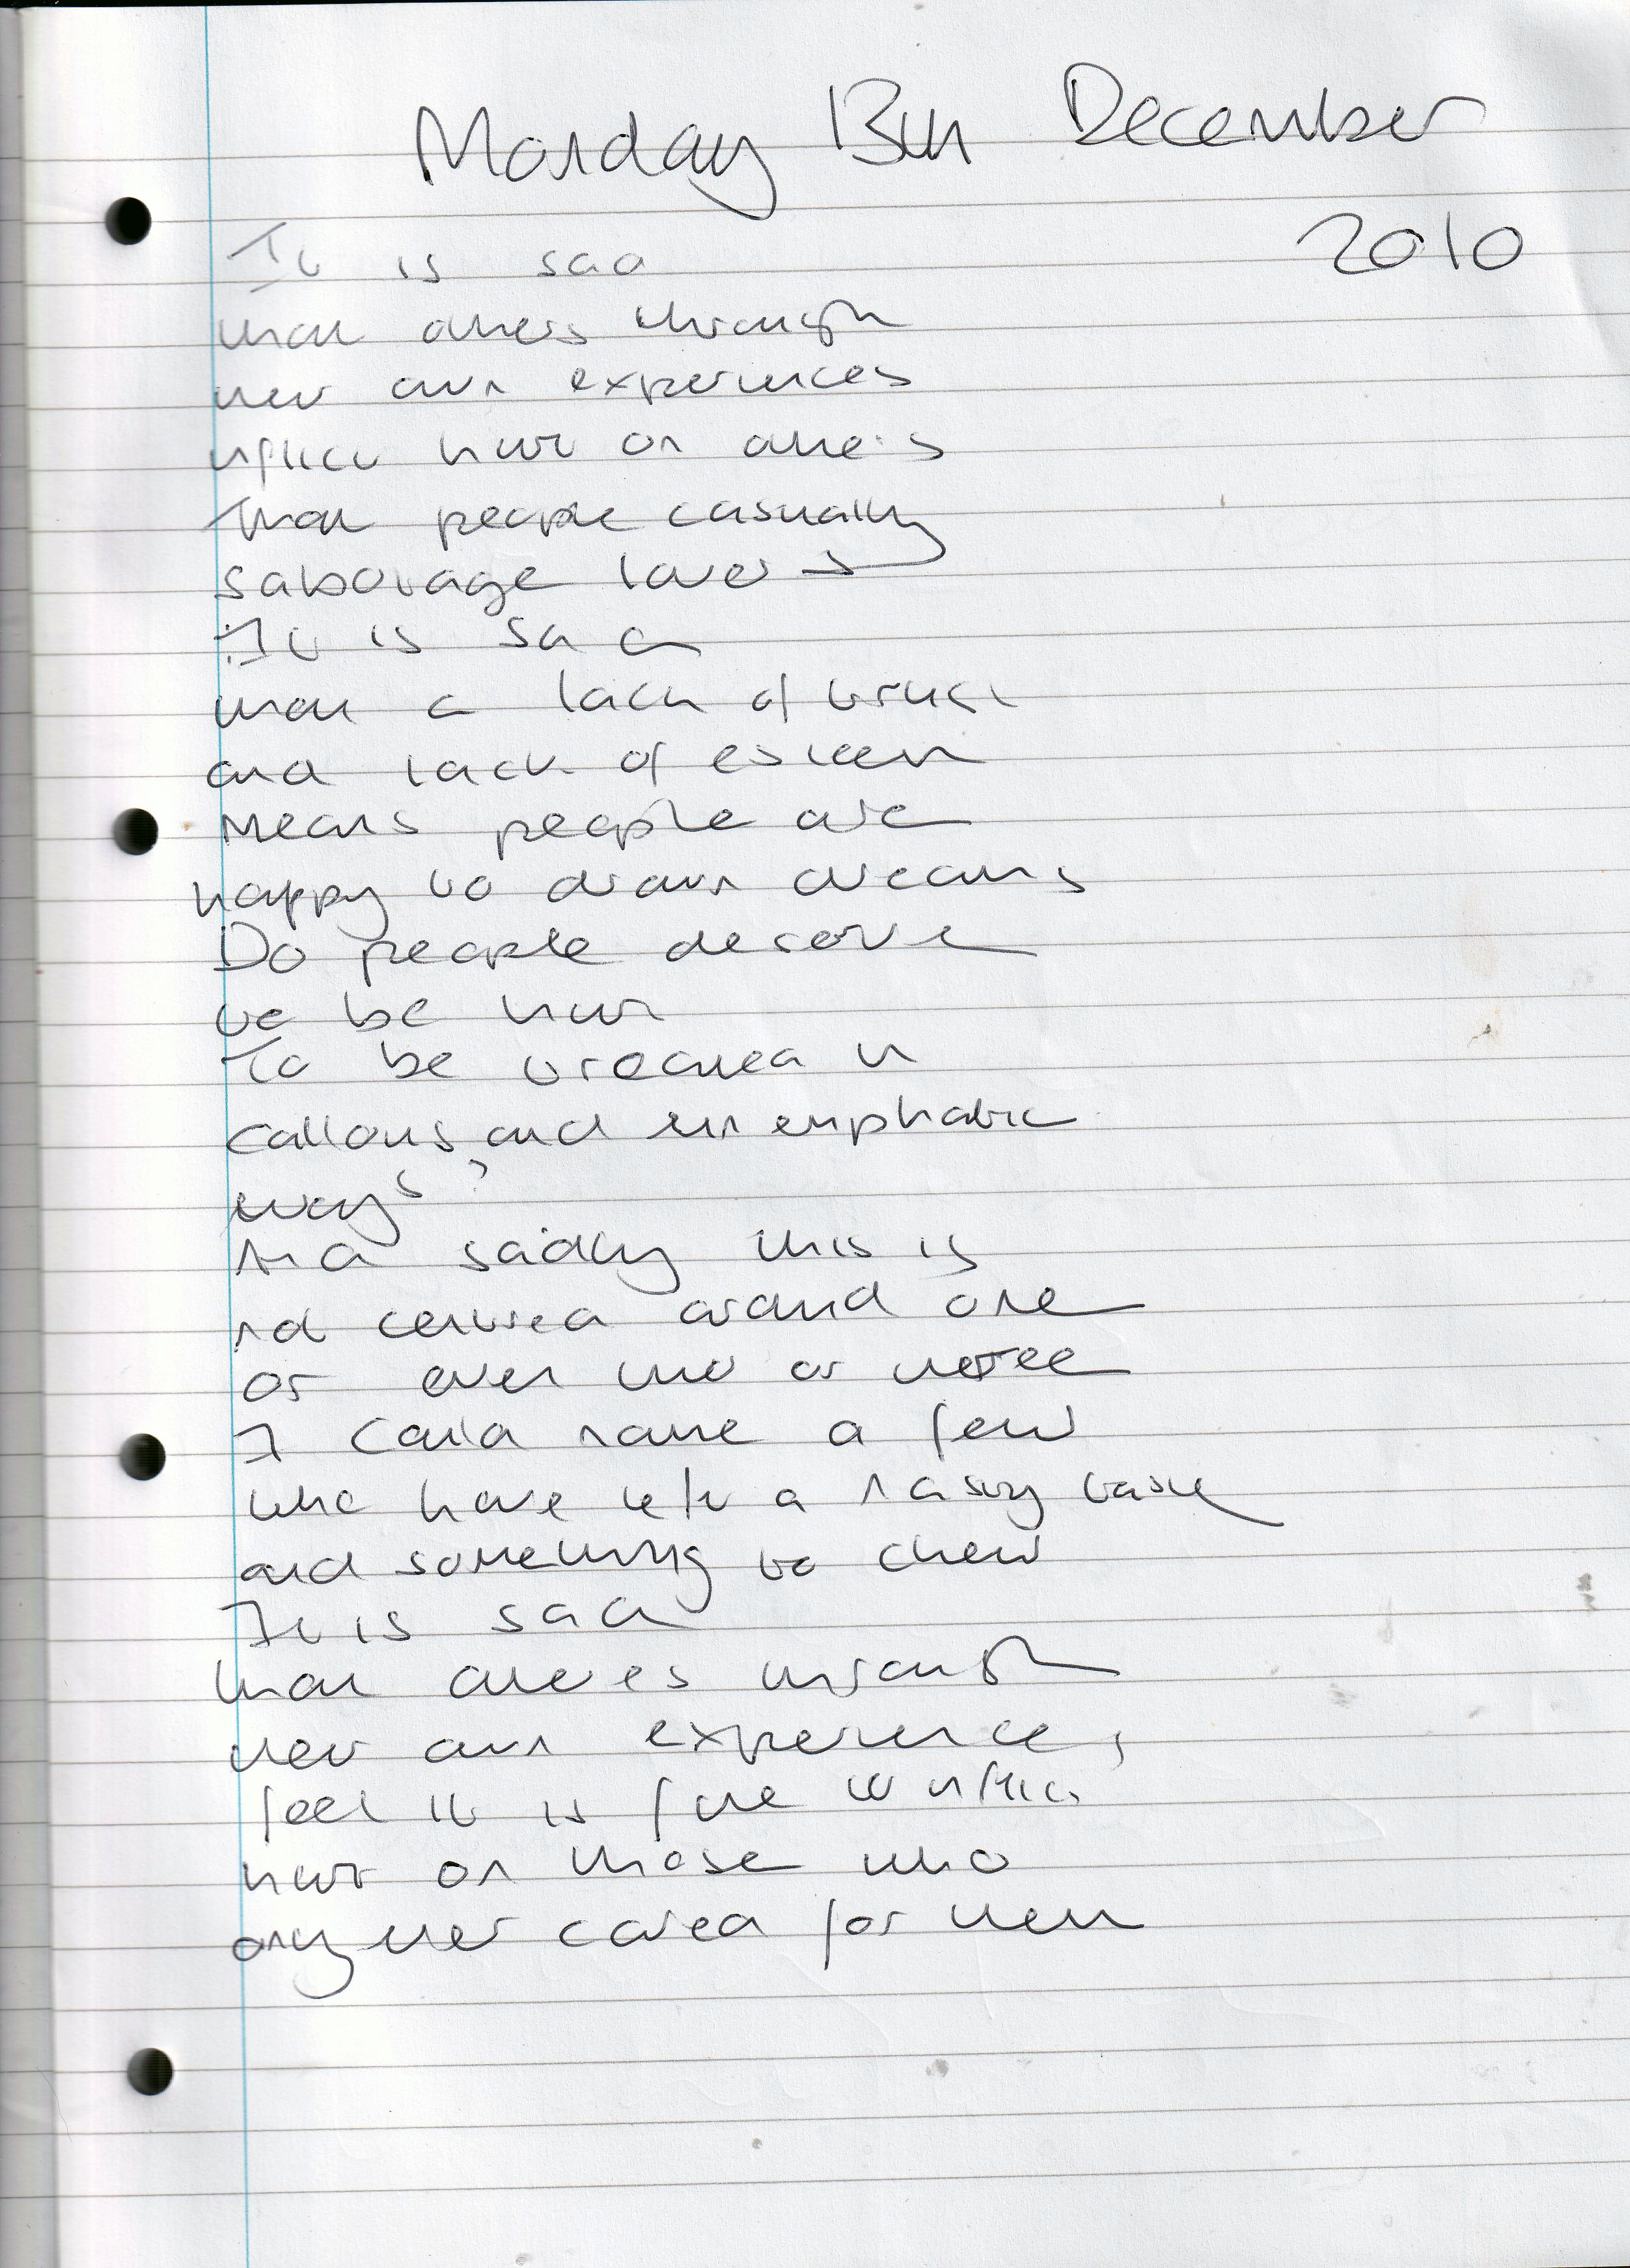 Monday 13th December
2010
It is sad
that others through
their own experiences
inflict hurt on others
That people casually
sabotage lovers
It is sad
that a lack of trust
and lack of esteem
Means people are
happy to drown dreams
Do people deserve
to be hurt
To be treated in
callous and un emphatic
ways?
And sadly this is
not centred around one
or even two or three
I could name a few
who have left a nasty taste
and something to chew
It is sad
that others through
their own experiences
feel it is fine to inflict
hurt on those who
only ever cared for them